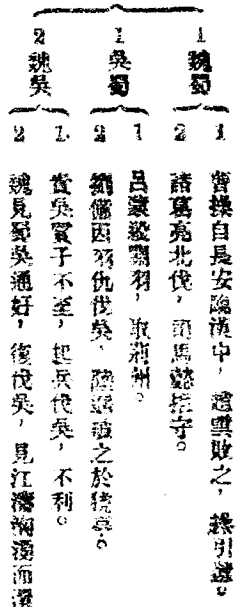 1 魏蜀
1 曹操自長安臨漢中，趙雲敗之，操引還。
2 諸葛亮北伐，司馬懿拒守。
1 吳蜀
1 呂蒙殺關羽，取荊州。
2 劉備因羽仇伐吳，陸遜破之於猇亭。
2 魏吳
1 責吳質子不至，起兵伐吳，不利。
2 魏見蜀吳通好，復伐吳，見江濤洶湧而還